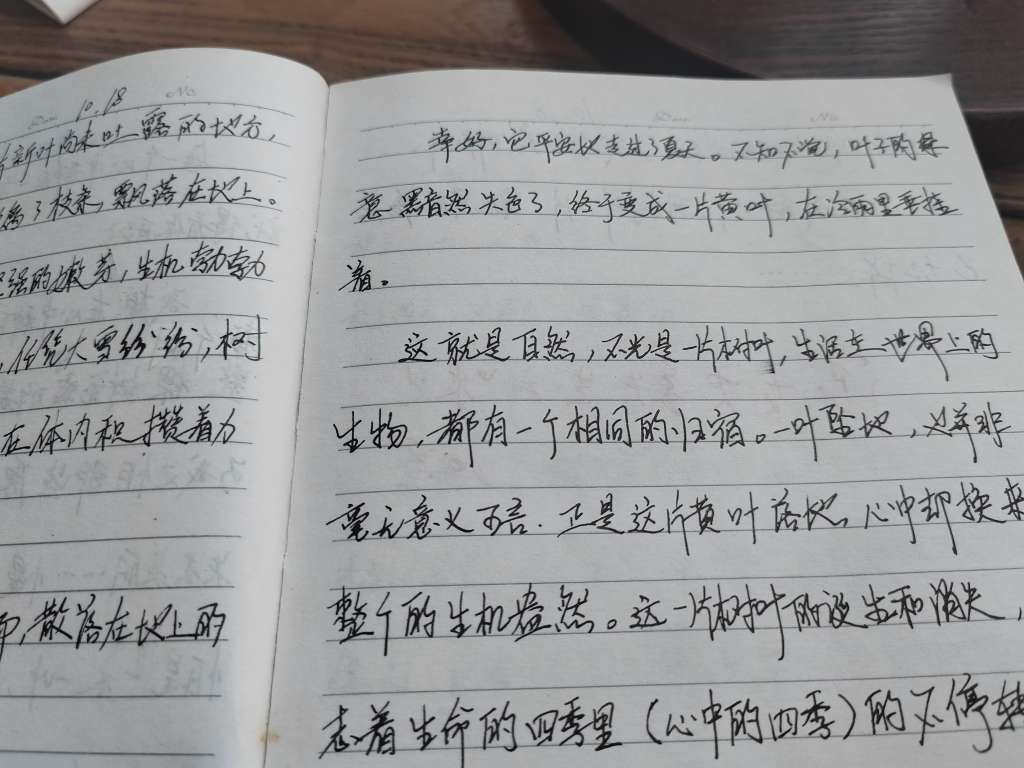 10.18
新叶尚未吐露的地方，
了枝来，飘落在地上。
强的嫩芽，生机勃勃
，任凭大雪纷纷，树
在体内积攒着力
，散落在地上的
Date No
幸好，它平安地走过了夏天。不知不觉，叶子的绿
意黯然失色了，终于变成一片黄叶，在冷雨里垂挂
着。
这就是自然，不光是一片树叶，生活在世界上的
生物，都有一个相同的归宿。一叶坠地，并非
毫无意义可言。正是这片黄叶落地，心中却换来
整个的生机盎然。这一片树叶的诞生和消失，
志着生命的四季里（心中的四季）的不停转